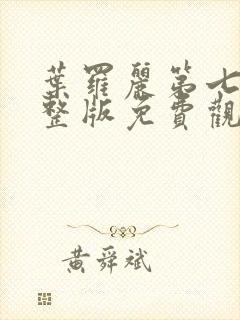 葉羅麗第七
整版免費觀
黃舜斌